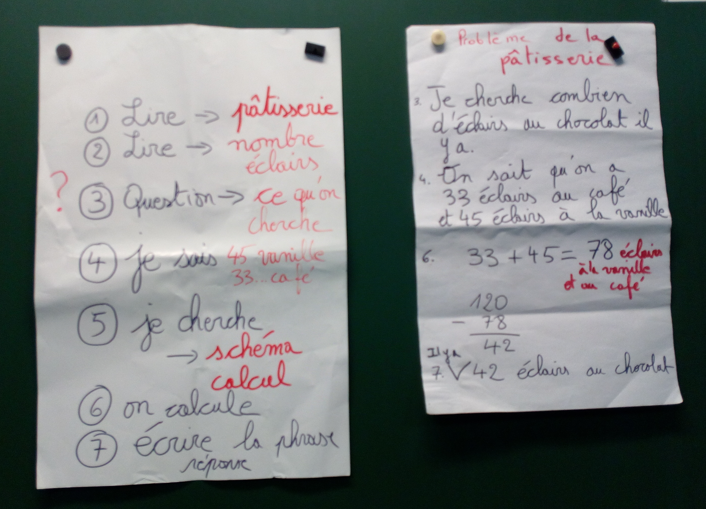 ① Lire → pâtisserie
② Lire → nombre
éclairs
? ③ Question → ce qu'on
cherche
④ je sais 45 vanille
33.. café
⑤ je cherche
→ schéma
calcul
⑥ on calcule
⑦ écrire la phrase
réponse
Problème de la
pâtisserie
3. Je cherche combien
d'éclairs au chocolat il
y a.
4. On sait qu'on a
33 éclairs au café
et 45 éclairs à la vanille
6. 33 + 45 = 78 éclairs
à la vanille
et au café
120
- 78
42
Il y a
7. V 42 éclairs au chocolat